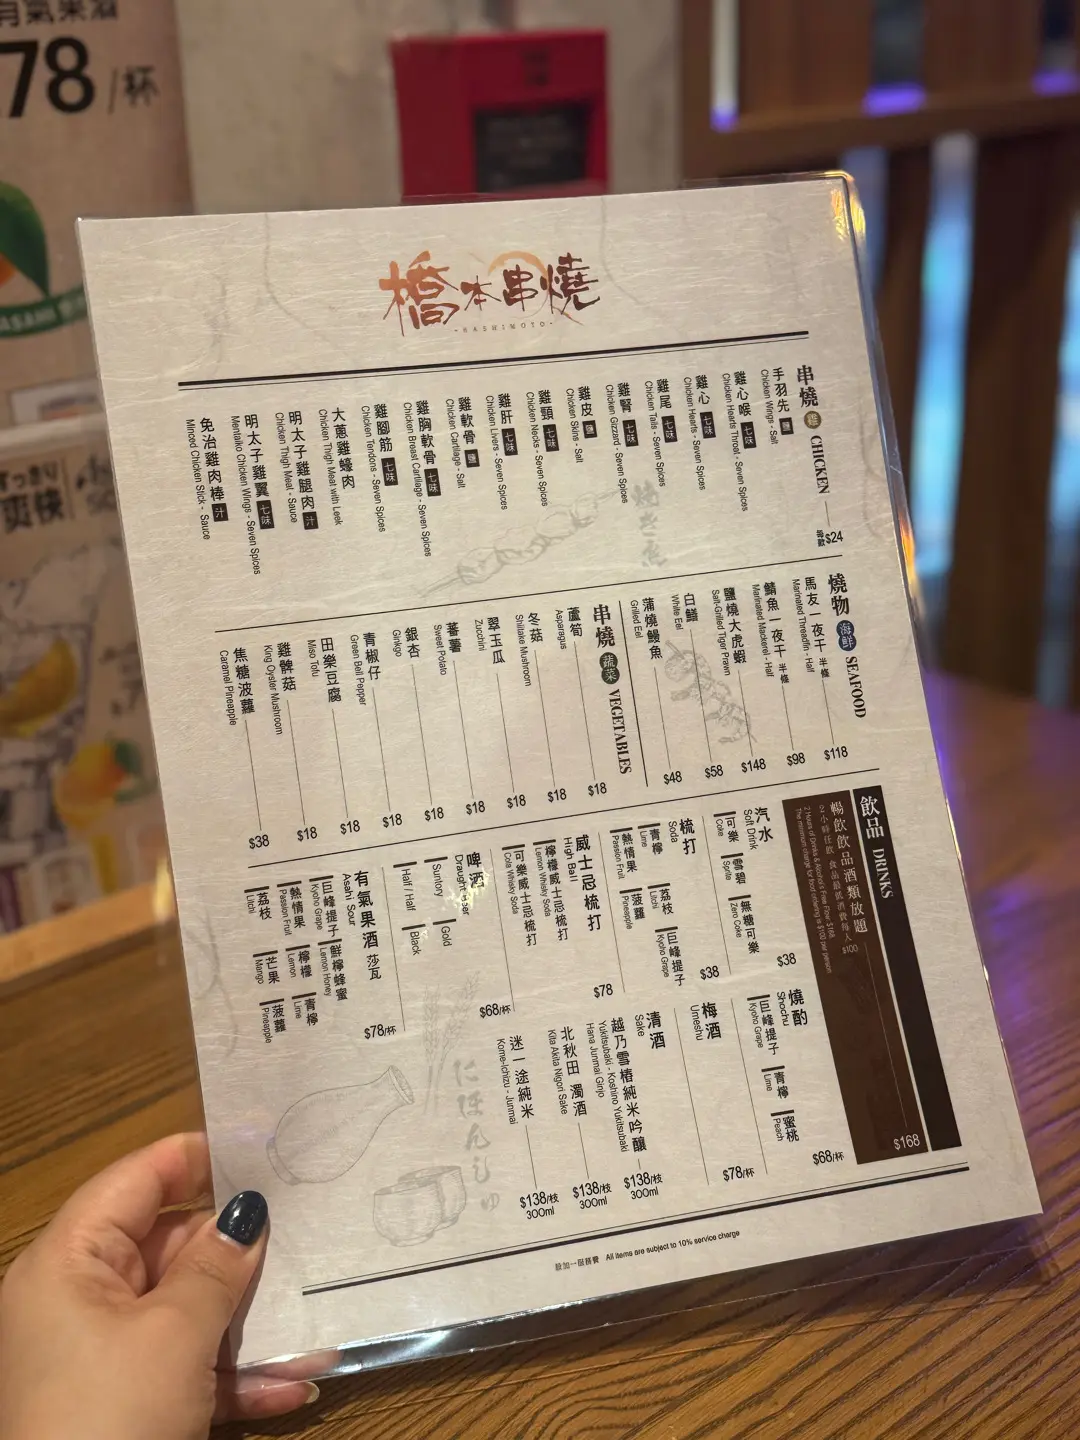 有氣果酒
78 /杯
ASAHI
すっきり
爽快
橋本串燒
- HASHIMOTO -
串燒 雞 CHICKEN 每款 $24
手羽先 鹽
Chicken Wings - Salt
雞心喉 七味
Chicken Hearts Throat - Seven Spices
雞心 七味
Chicken Hearts - Seven Spices
雞尾 七味
Chicken Tails - Seven Spices
雞腎 七味
Chicken Gizzard - Seven Spices
雞皮 鹽
Chicken Skins - Salt
雞頸 七味
Chicken Necks - Seven Spices
雞肝 七味
Chicken Livers - Seven Spices
雞軟骨 鹽
Chicken Cartilage - Salt
雞胸軟骨 七味
Chicken Breast Cartilage - Seven Spices
雞腳筋 七味
Chicken Tendons - Seven Spices
大蔥雞蠔肉
Chicken Thigh Meat with Leek
明太子雞腿肉 汁
Chicken Thigh Meat - Sauce
明太子雞翼 七味
Mentaiko Chicken Wings - Seven Spices
免治雞肉棒 汁
Minced Chicken Stick - Sauce
燒物 海鮮 SEAFOOD
馬友一夜干 半條 $118
Marinated Threadfin - Half
鯖魚一夜干 半條 $98
Marinated Mackerel - Half
鹽燒大虎蝦 $148
Salt-Grilled Tiger Prawn
白鱔 $58
White Eel
蒲燒鰻魚 $48
Grilled Eel
串燒 蔬菜 VEGETABLES
蘆筍 $18
Asparagus
冬菇 $18
Shiitake Mushroom
翠玉瓜 $18
Zucchini
蕃薯 $18
Sweet Potato
銀杏 $18
Ginkgo
青椒仔 $18
Green Bell Pepper
田樂豆腐 $18
Miso Tofu
雞髀菇 $18
King Oyster Mushroom
焦糖波蘿 $38
Caramel Pineapple
飲品 DRINKS
暢飲飲品酒類放題 $168
2小時任飲 食品最低消費每人$100
2 Hours of Drinks & Alcohol's Free Flow: $168
The minimum charge for food ordering is $100 per person
汽水 $38
Soft Drink
可樂 雪碧 無糖可樂
Coke Sprite Zero Coke
梳打 $38
Soda
青檸 荔枝 巨峰提子
Lime Litchi Kyoho Grape
熱情果 菠蘿
Passion Fruit Pineapple
威士忌梳打 $78
High Ball
檸檬威士忌梳打
Lemon Whisky Soda
可樂威士忌梳打
Cola Whisky Soda
啤酒 $68/杯
Draught Beer
Suntory Gold
Half / Half Black
有氣果酒 莎瓦 $78/杯
Asahi Sour
巨峰提子 鮮檸蜂蜜
Kyoho Grape Lemon Honey
熱情果 檸檬 青檸
Passion Fruit Lemon Lime
荔枝 芒果 菠蘿
Litchi Mango Pineapple
燒酌 $68/杯
Shochu
巨峰提子 青檸 蜜桃
Kyoho Grape Lime Peach
梅酒 $78/杯
Umeshu
清酒
Sake
越乃雪椿純米吟釀 $138/枝
Yukitsubaki - Koshino Yukitsubaki 300ml
Hana Junmai Ginjo
北秋田 濁酒 $138/枝
Kita Akita Nigori Sake 300ml
迷一途純米 $138/枝
Kome-Ichizu - Junmai 300ml
にほんしゅ
設加一服務費 All items are subject to 10% service charge